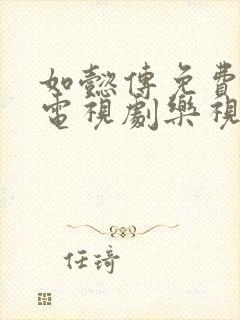 如懿傳免費
電視劇樂視
任琦